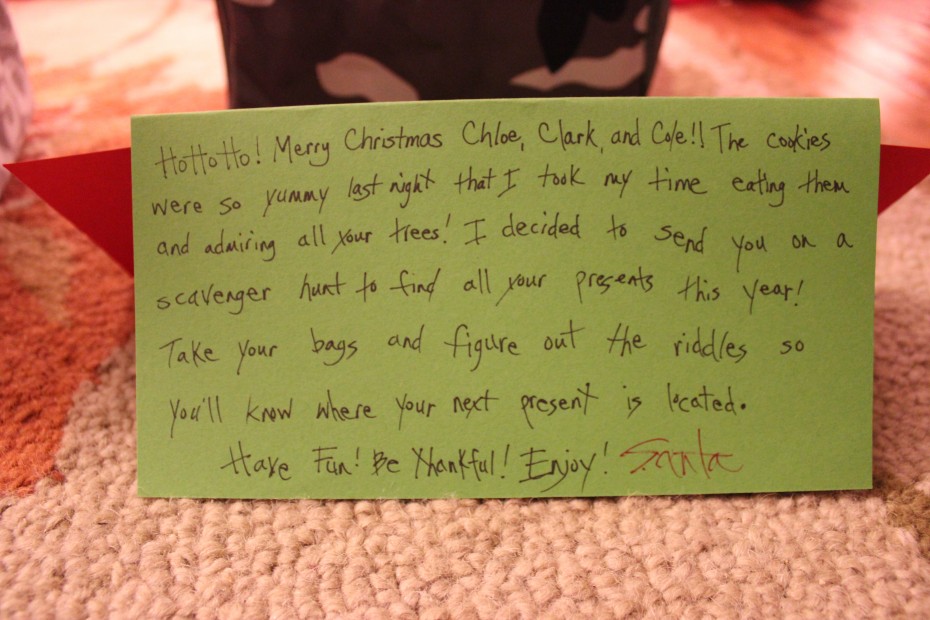 HoHoHo! Merry Christmas Chloe, Clark, and Cole!! The cookies
were so yummy last night that I took my time eating them
and admiring all your trees! I decided to send you on a
scavenger hunt to find all your presents this year!
Take your bags and figure out the riddles so
you'll know where your next present is located.
Have Fun! Be Thankful! Enjoy! Santa